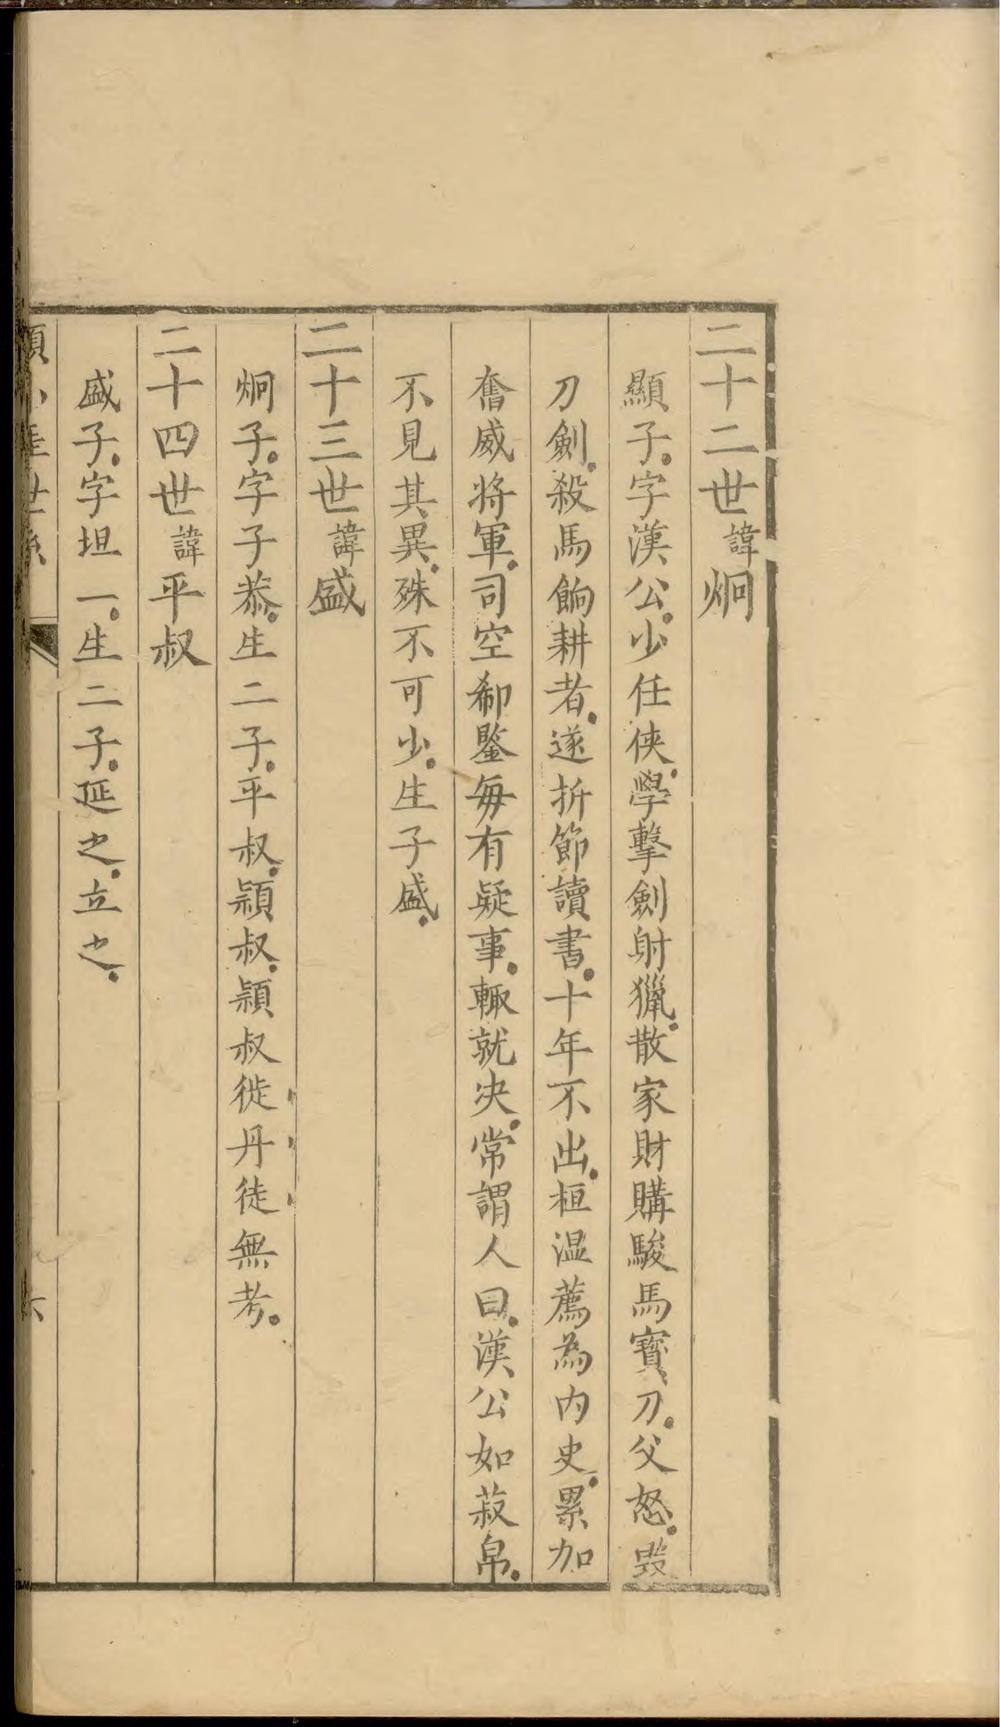 二十二世諱炯
顯子。字漢公。少任俠。學擊劍射獵。散家財購駿馬寳刀。父怒。毀
刀劍。殺馬餉耕者。遂折節讀書。十年不出。桓温薦為内史。累加
奮威將軍。司空郗鑒每有疑事。輒就决。常謂人曰。漢公如菽帛。
不見其異。殊不可少。生子盛。
二十三世諱盛
炯子。字子恭。生二子。平叔。頴叔。頴叔徙丹徒無考。
二十四世諱平叔
盛子。字坦一。生二子。延之。立之。
六